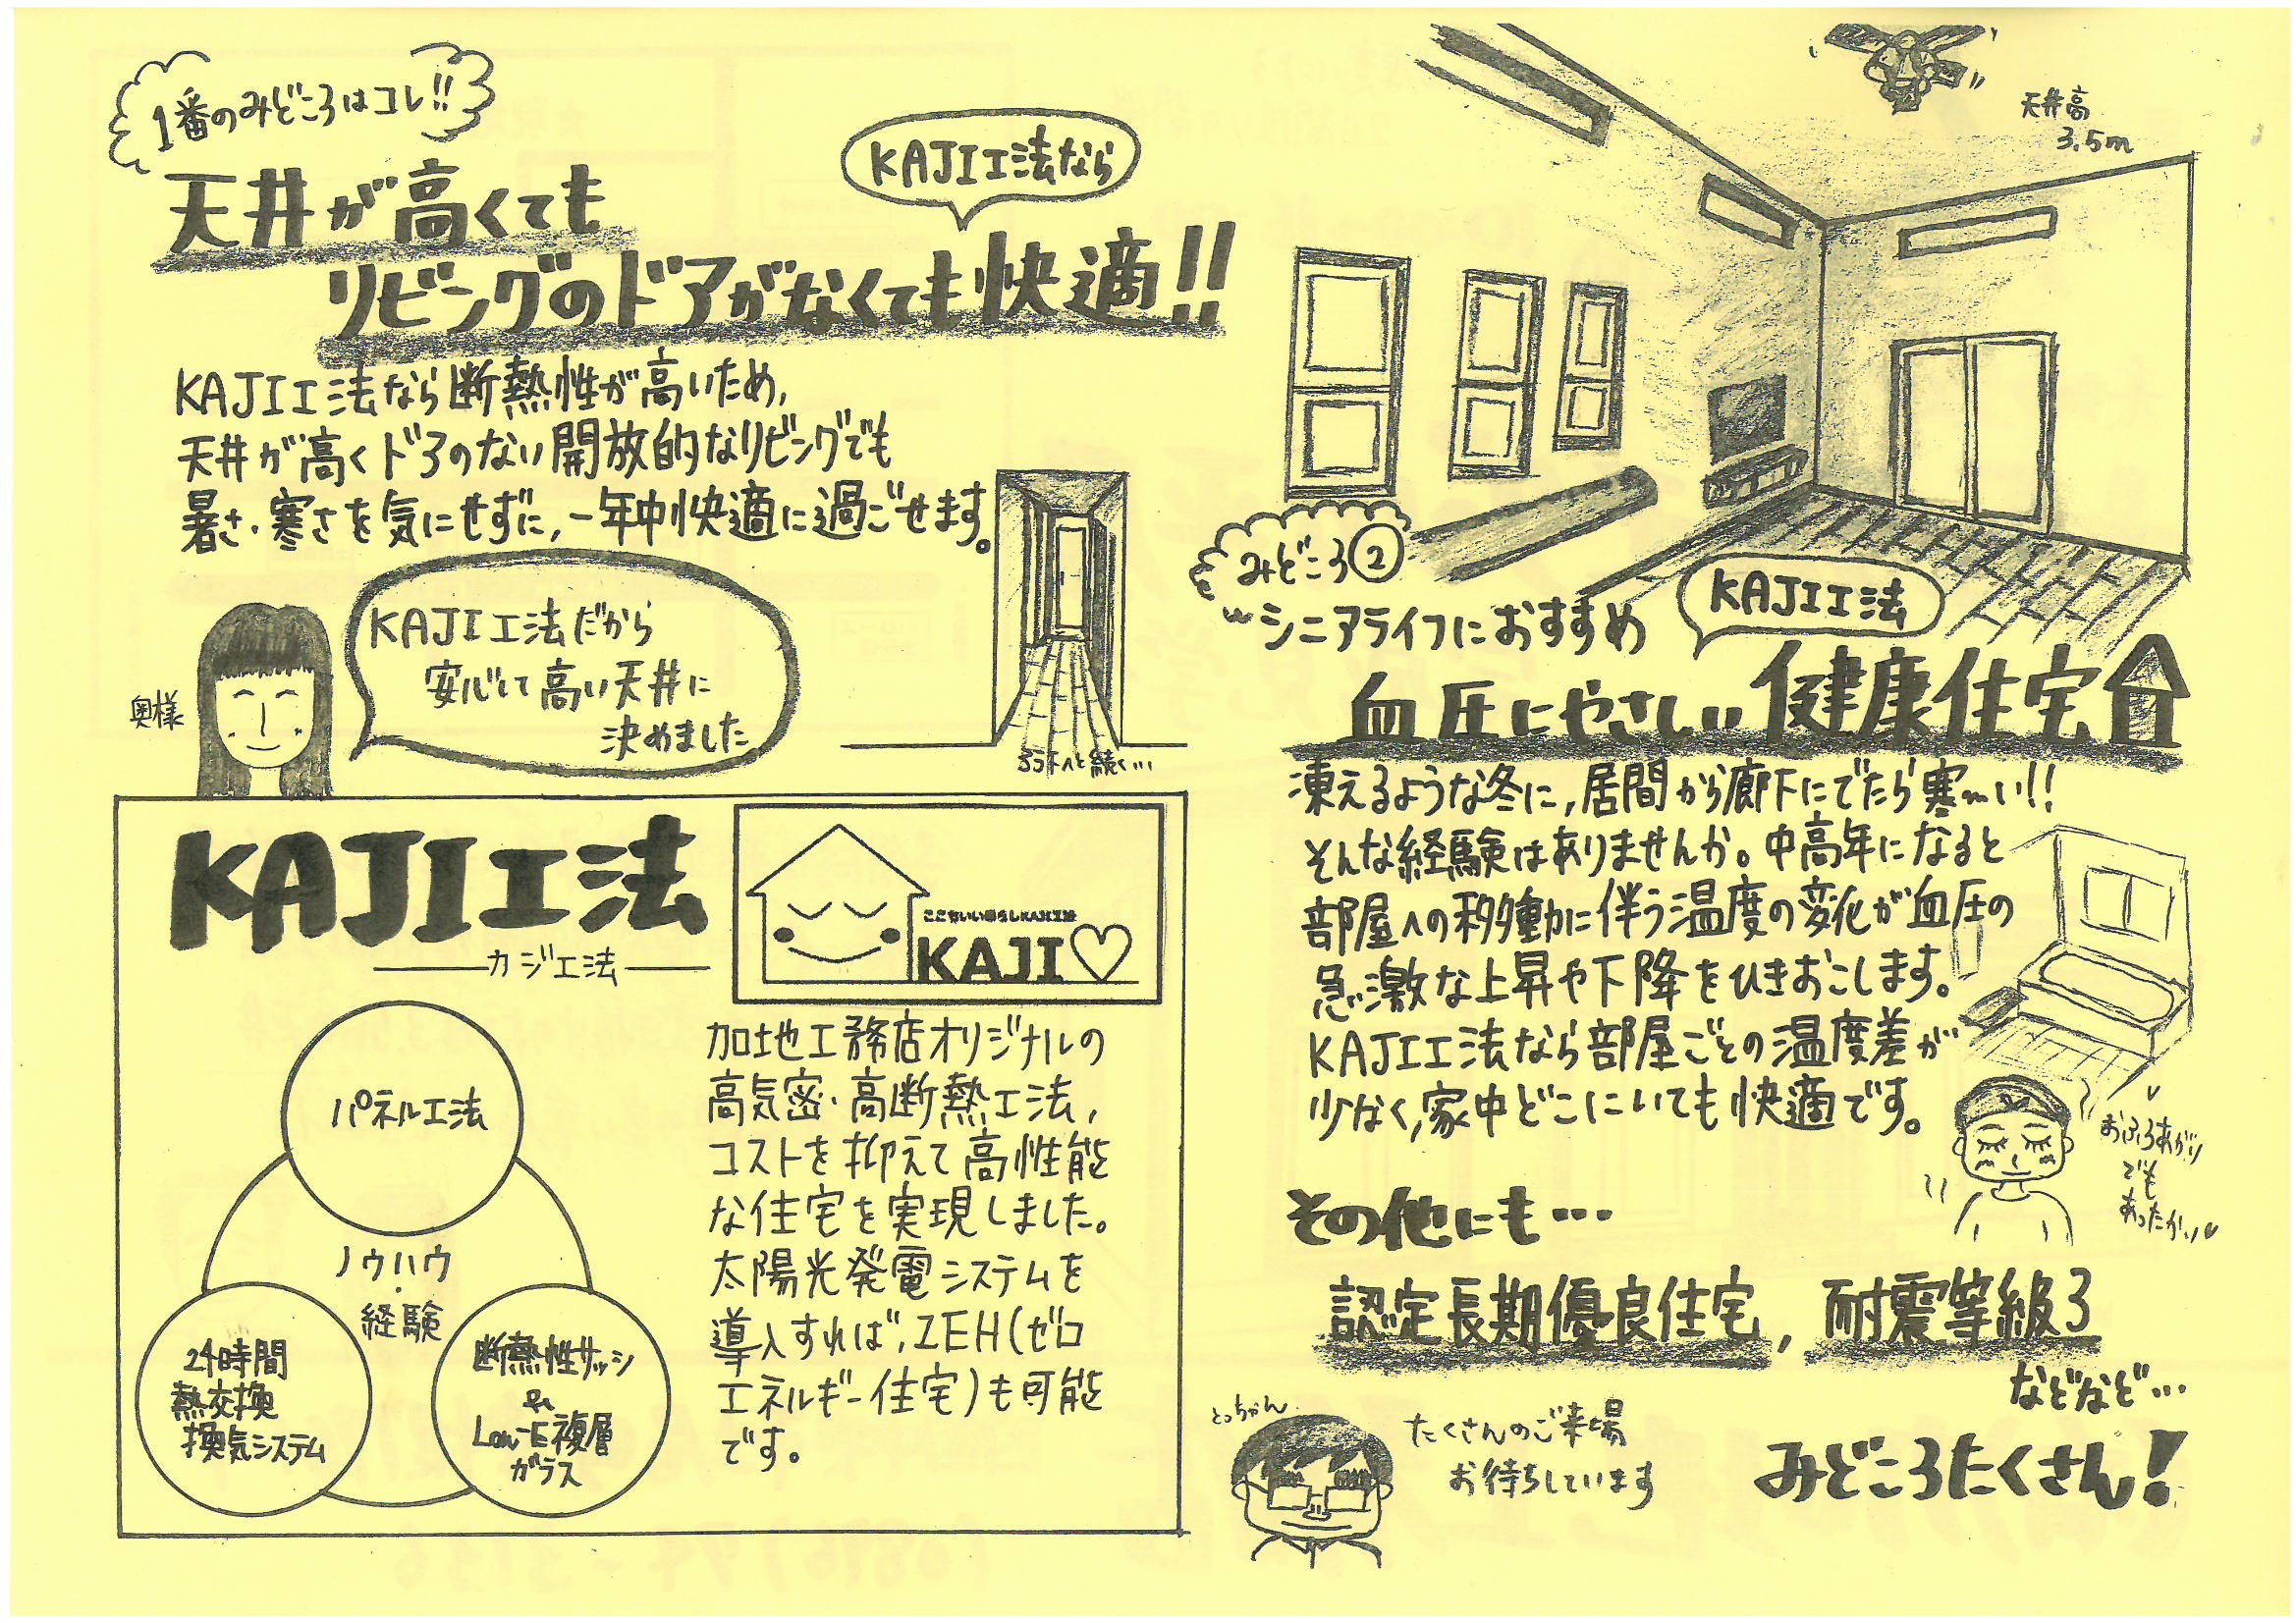 1番のみどころはコレ!!
天井が高くても
KAJI工法なら
リビングのドアがなくても快適!!
KAJI工法なら断熱性が高いため,
天井が高くドアのない開放的なリビングでも
暑さ・寒さを気にせずに,一年中快適に過ごせます。
奥様
KAJI工法だから
安心して高い天井に
決めました
ろう下へと続く…
KAJI工法
カジ工法
ここちいい暮らしKAJI工法
KAJI♡
パネル工法
ノウハウ
・
経験
24時間
熱交換
換気システム
断熱性サッシ
&
Low-E複層
ガラス
加地工務店オリジナルの
高気密・高断熱工法,
コストを抑えて高性能
な住宅を実現しました。
太陽光発電システムを
導入すれば,ZEH(ゼロ
エネルギー住宅)も可能
です。
天井高
3.5m
みどころ②
シニアライフにおすすめ
KAJI工法
血圧にやさしい健康住宅
凍えるような冬に,居間から廊下にでたら寒〜い!!
そんな経験はありませんか。中高年になると
部屋への移動に伴う温度の変化が血圧の
急激な上昇や下降をひきおこします。
KAJI工法なら部屋ごとの温度差が
少なく,家中どこにいても快適です。
おふろあがり
でも
あったか〜い♥
その他にも…
認定長期優良住宅,耐震等級3
などなど…
とっちゃん
たくさんのご来場
お待ちしています
みどころたくさん!